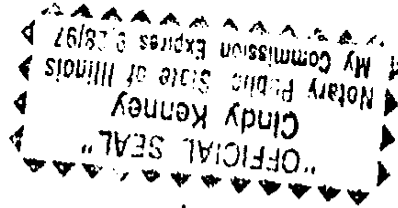 "OFFICIAL SEAL"
Cindy Kenney
Notary Public State of Illinois
My Commission Expires 9/28/97